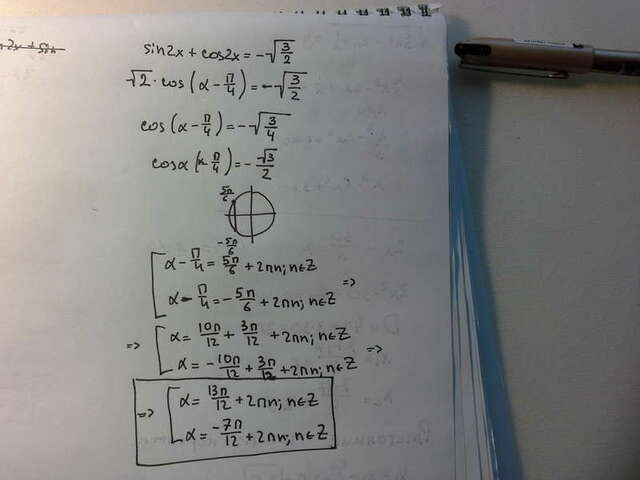 sin2x + cos2x = -√(3/2)
√2 · cos(α - π/4) = -√(3/2)
cos(α - π/4) = -√(3/4)
cosα( π/4) = -√3/2
5π/6
-5π/6
[α - π/4 = 5π/6 + 2πn; n∈Z
[α - π/4 = -5π/6 + 2πn; n∈Z =>
=> [α = 10π/12 + 3π/12 + 2πn; n∈Z
[α = -10π/12 + 3π/12 + 2πn; n∈Z =>
=> [α = 13π/12 + 2πn; n∈Z
[α = -7π/12 + 2πn; n∈Z